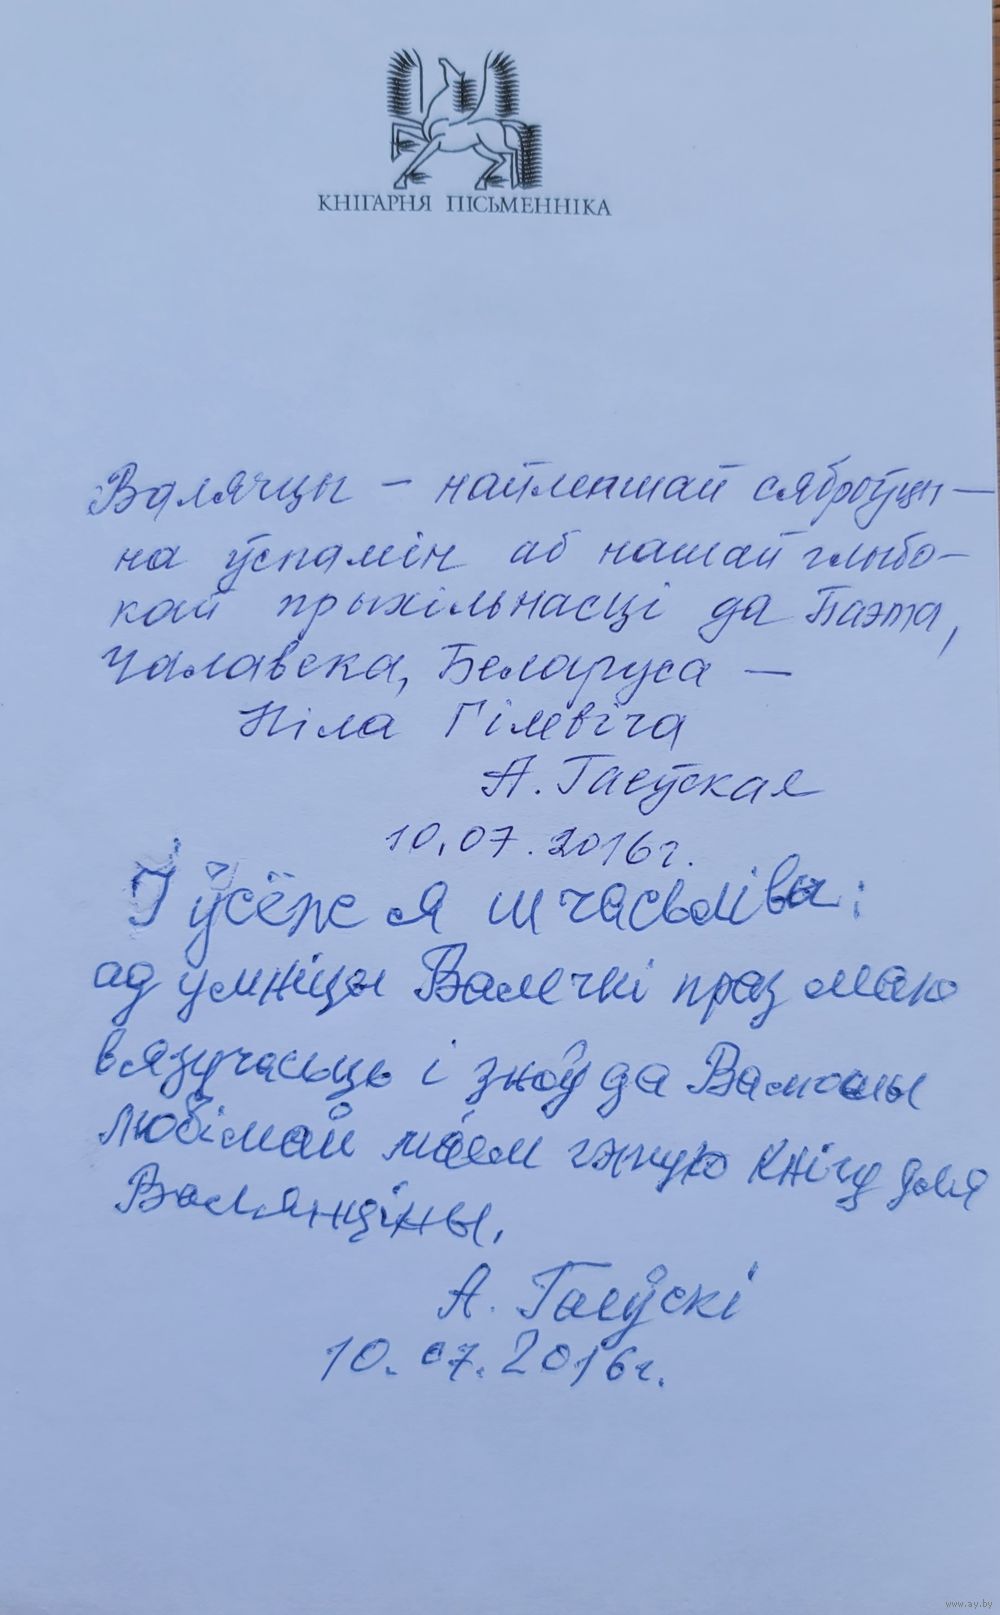 КНІГАРНЯ ПІСЬМЕННІКА
Валячцы – найлепшай сяброўцы –
на ўспамін аб нашай глыбо-
кай прыхільнасці да Паэта,
Чалавека, Беларуса –
Ніла Гілевіча
А. Гаеўская
10.07.2016г.
І ўсёж я шчасьліва:
ад умніцы Валечкі праз маю
вязучасьць і зноў да
любімай кнігу для
Валянціны.
А. Гаеўскі
10.07.2016г.
www.ay.by